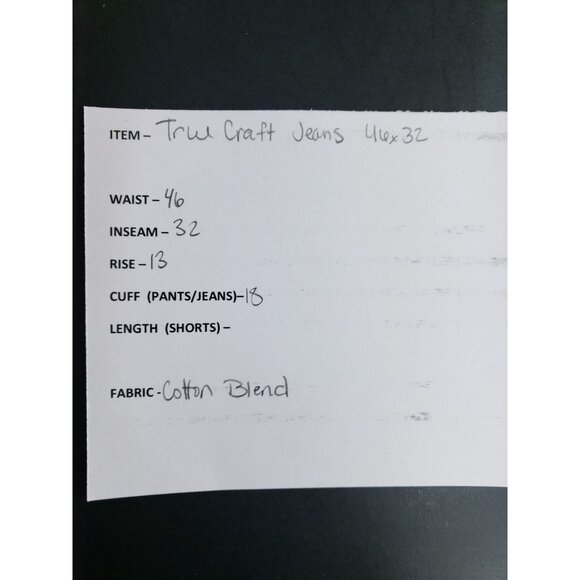 ITEM – True Craft Jeans 46x32
WAIST – 46
INSEAM – 32
RISE – 13
CUFF (PANTS/JEANS)– 18
LENGTH (SHORTS) –
FABRIC - Cotton Blend